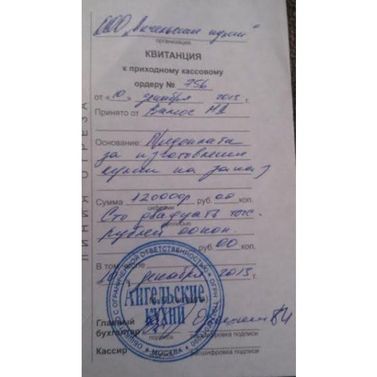 ООО "Ангельские кухни"
организация
КВИТАНЦИЯ
к приходному кассовому
ордеру № 756
от «10» декабря 2013 г.
Принято от
Основание: Предоплата
за изготовление
кухни на заказ
Сумма 120000 руб. 00 коп.
цифрами
Сто двадцать тыс.
рублей 00 коп.
руб. 00 коп.
В том числе
10 декабря 2013
ЛИНИЯ ОТРЕЗА
С ОГРАНИЧЕННОЙ ОТВЕТСТВЕННОСТЬЮ
Ангельские
КУХНИ
МОСКВА
Главный
бухгалтер
подпись расшифровка подписи
Кассир
подпись расшифровка подписи